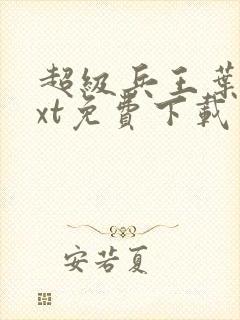 超級兵王葉
xt免費下載
安若夏